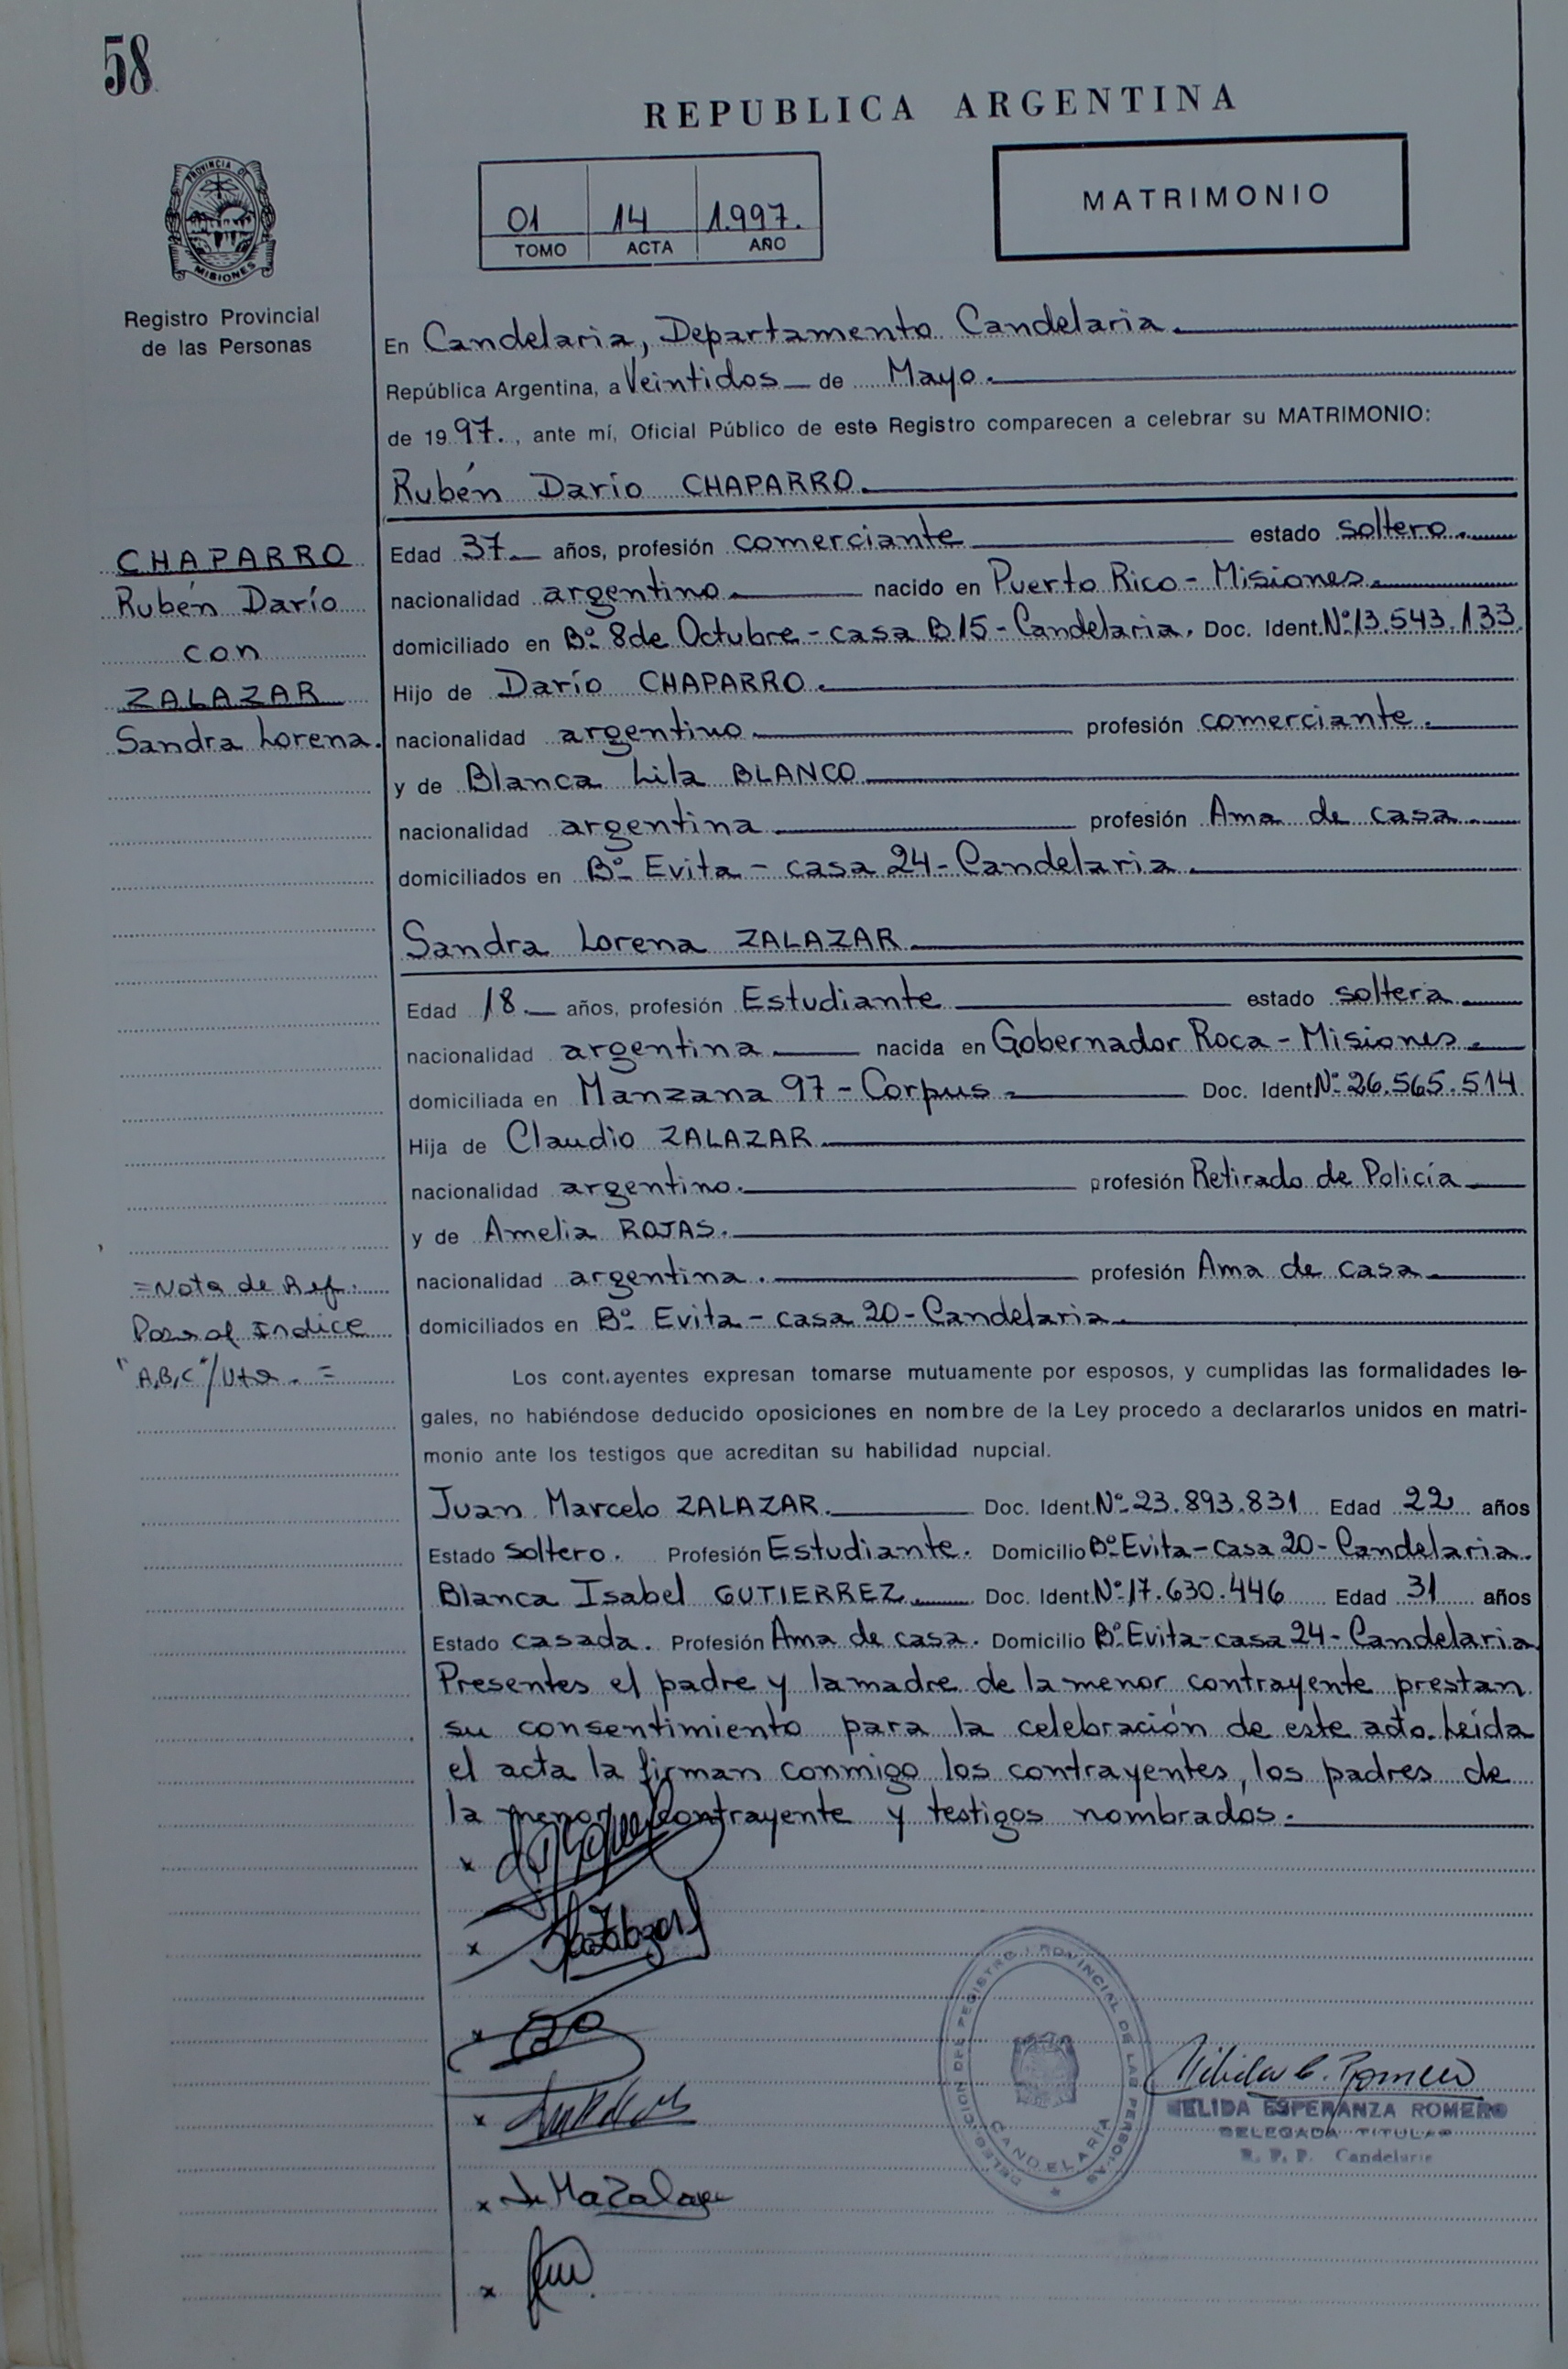 58
REPUBLICA ARGENTINA
PROVINCIA DE
MISIONES
01 14 1.997.
TOMO ACTA AÑO
MATRIMONIO
Registro Provincial
de las Personas
En Candelaria, Departamento Candelaria.
República Argentina, a Veintidos de Mayo.
de 19 97., ante mí, Oficial Público de este Registro comparecen a celebrar su MATRIMONIO:
Rubén Darío CHAPARRO
CHAPARRO
Rubén Darío
con
ZALAZAR
Sandra Lorena.
Edad 37 años, profesión comerciante estado soltero.
nacionalidad argentino. nacido en Puerto Rico - Misiones.
domiciliado en Bº 8 de Octubre - casa B 15 - Candelaria. Doc. Ident. Nº 13.543.133
Hijo de Darío CHAPARRO.
nacionalidad argentino. profesión comerciante.
y de Blanca Lila BLANCO
nacionalidad argentina profesión Ama de casa.
domiciliados en Bº Evita - casa 24 - Candelaria.
Sandra Lorena ZALAZAR
Edad 18. años, profesión Estudiante estado soltera.
nacionalidad argentina nacida en Gobernador Roca - Misiones.
domiciliada en Manzana 97 - Corpus. Doc. Ident Nº 26.565.514
Hija de Claudio ZALAZAR
nacionalidad argentino. profesión Retirado de Policía
y de Amelia ROJAS.
nacionalidad argentina. profesión Ama de casa
domiciliados en Bº Evita - casa 20 - Candelaria.
=Nota de Ref.:
Pasa al Indice
"A,B,C"/Vta. =
Los cont.ayentes expresan tomarse mutuamente por esposos, y cumplidas las formalidades le-
gales, no habiéndose deducido oposiciones en nombre de la Ley procedo a declararlos unidos en matri-
monio ante los testigos que acreditan su habilidad nupcial.
Juan Marcelo ZALAZAR. Doc. Ident. Nº 23.893.831 Edad 22 años
Estado soltero. Profesión Estudiante. Domicilio Bº Evita - casa 20 - Candelaria.
Blanca Isabel GUTIERREZ. Doc. Ident. Nº 17.630.446 Edad 31 años
Estado casada. Profesión Ama de casa. Domicilio Bº Evita - casa 24 - Candelaria
Presentes el padre y la madre de la menor contrayente prestan
su consentimiento para la celebración de este acto. Leída
el acta la firman conmigo los contrayentes, los padres de
la menor contrayente y testigos nombrados.
DELEGACION DEL REGISTRO PROVINCIAL DE LAS PERSONAS
CANDELARIA
ELIDA ESPERANZA ROMERO
DELEGADA TITULAR
R. P. P. Candelaria